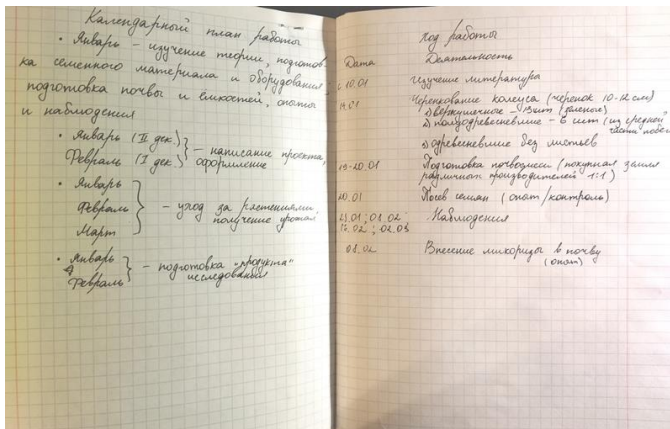 Календарный план работы
• Январь – изучение теории, подготов
ка семенного материала и оборудования,
подготовка почвы и емкостей, опыты
и наблюдения
• Январь (II дек.)
Февраль (I дек.) } – написание проекта,
оформление
• Январь
Февраль } – уход за растениями,
получение урожая
Март
• Январь
Февраль } – подготовка "продукта"
исследования
Ход работы
Дата Деятельность
с 10.01 Изучение литературы
Черенкование колеуса (черенок 10-12 см)
1) верхушечное – (зеленые)
2) полуодревесневшие – 6 шт (из средней
части побега
3) одревесневшие без листьев
19-20.01 Подготовка почвосмеси (покупная земля
различных производителей – 1:1)
20.01 Посев семян (опыт/контроль)
01.02 Наблюдения
02.02
Внесение микоризы в почву
(опыт)